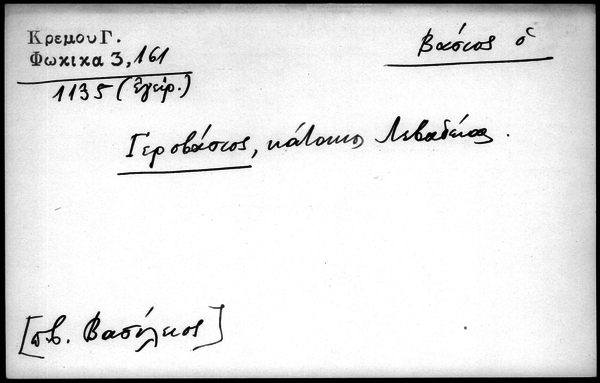 Κρεμου Γ.
Φωκικα 3,161
Βάσιος ὁ
1135 (ἐγείρ.)
Γεροβάσιος, κάτοικος Λεβαδείας.
[πβ. Βασίλειος]